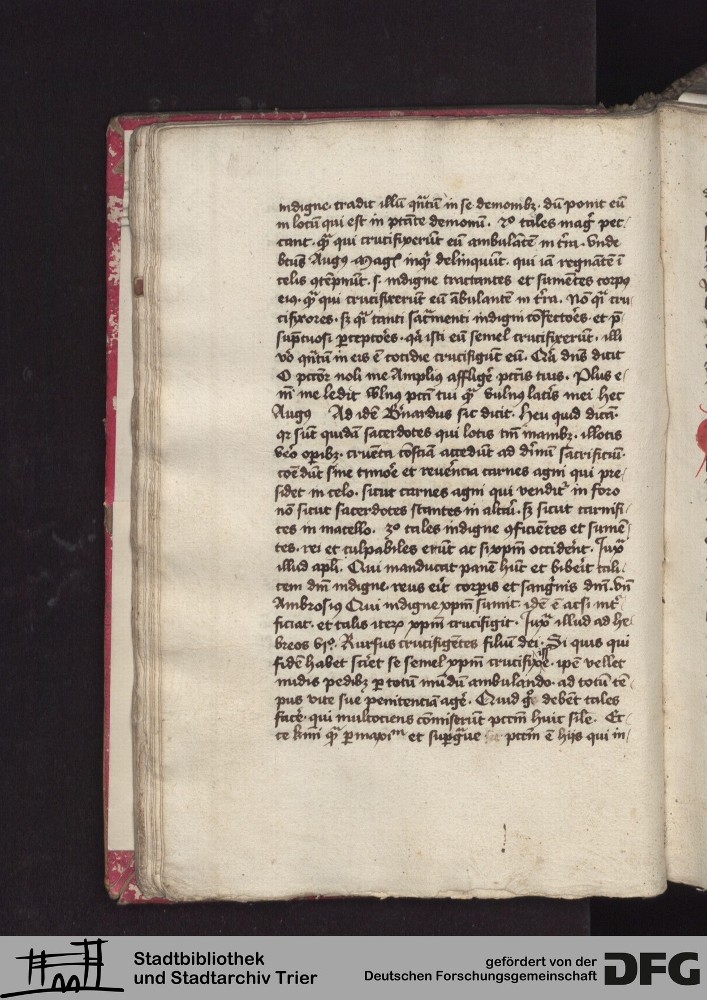 indigne. tradit illū qntū in se demonibꝫ. dū ponit eū
in locū qui est in ptāte demonū. 2º tales mag̃ pec-
cant. q̃ꝫ qui crucifixerūt eū ambulātē in t̃ra. vnde
btūs Augꝯ Magꝭ inqͥ delinquūt. qui iā regnātē ī
celis ꝯtēpnūt. s. indigne tractantes et sumētes corpꝯ
eiꝯ. q̃ꝫ qui crucifixerūt eū ābulantē in t̃ra. Nō qꝛ cru-
cifixores. sꝫ qꝛ tanti sac̃menti indigni cōfectoēs. et p̄-
sūptuosi ꝑceptoēs. qꝛ isti eū semel crucifixerūt. illi
vo qntū in eis ē cotidie crucifigūt eū. Qꝛ dns dicit
O pctōr noli me Amplius affligẽ pctīs tuis. Plus e-
m̄ me ledit wlnꝯ pctī tui q̃ꝫ vulnꝯ latīs mei hec
Augꝯ Ad idē Bn̄ardus sic dicit. heu quid dicā.
qꝛ sūt quidā sacerdotes qui lotis tm̄ manibꝫ. illotis
vero oꝑibꝫ. cruēta cōscīa accedūt ad diuinū sacrificiū.
coēdūt sine timore et reuerēcia carnes agni qui pre-
sidet in celo. sicut carnes agni qui vendit̃ in foro
nō sicut sacerdotes stantes in altāi. sꝫ sicut carnifi-
ces in macello. 3º tales indigne ꝯficiētes et sumē-
tes. rei et culpabiles erūt ac si xp̄m occiderēt. Iux̃
illud apli. Qui manducat panē hūc et biberit cali-
cem dnī indigne. reus eīt corꝑis et sang̃nis dnī. vn̄
Ambrosiꝯ Qui indigne xp̄m sumit. idē ē ac si int̃-
ficiat. et talis iteꝝ xp̄m crucifigit. Iux̃ illud ad he-
breos vjº. Rursus crucifigētes filiū dei. Si quis qui
fidē habet sciret se semel xp̄m crucifixisse. ip̄e vellet
nudis pedibꝫ ꝑ totū mūdū ambulando. ad totū tē-
pus vite sue penitenciā agẽ. Quid g̊ debēt tales
facẽ. qui multociens cōmiserūt pctm̄ huic sil̄e. Ec-
ce kmī q̃ꝫ ꝑmaximᵐ et sup̃g̃ue pctm̄ ē hijs qui in-
Stadtbibliothek
und Stadtarchiv Trier
gefördert von der
Deutschen Forschungsgemeinschaft
DFG